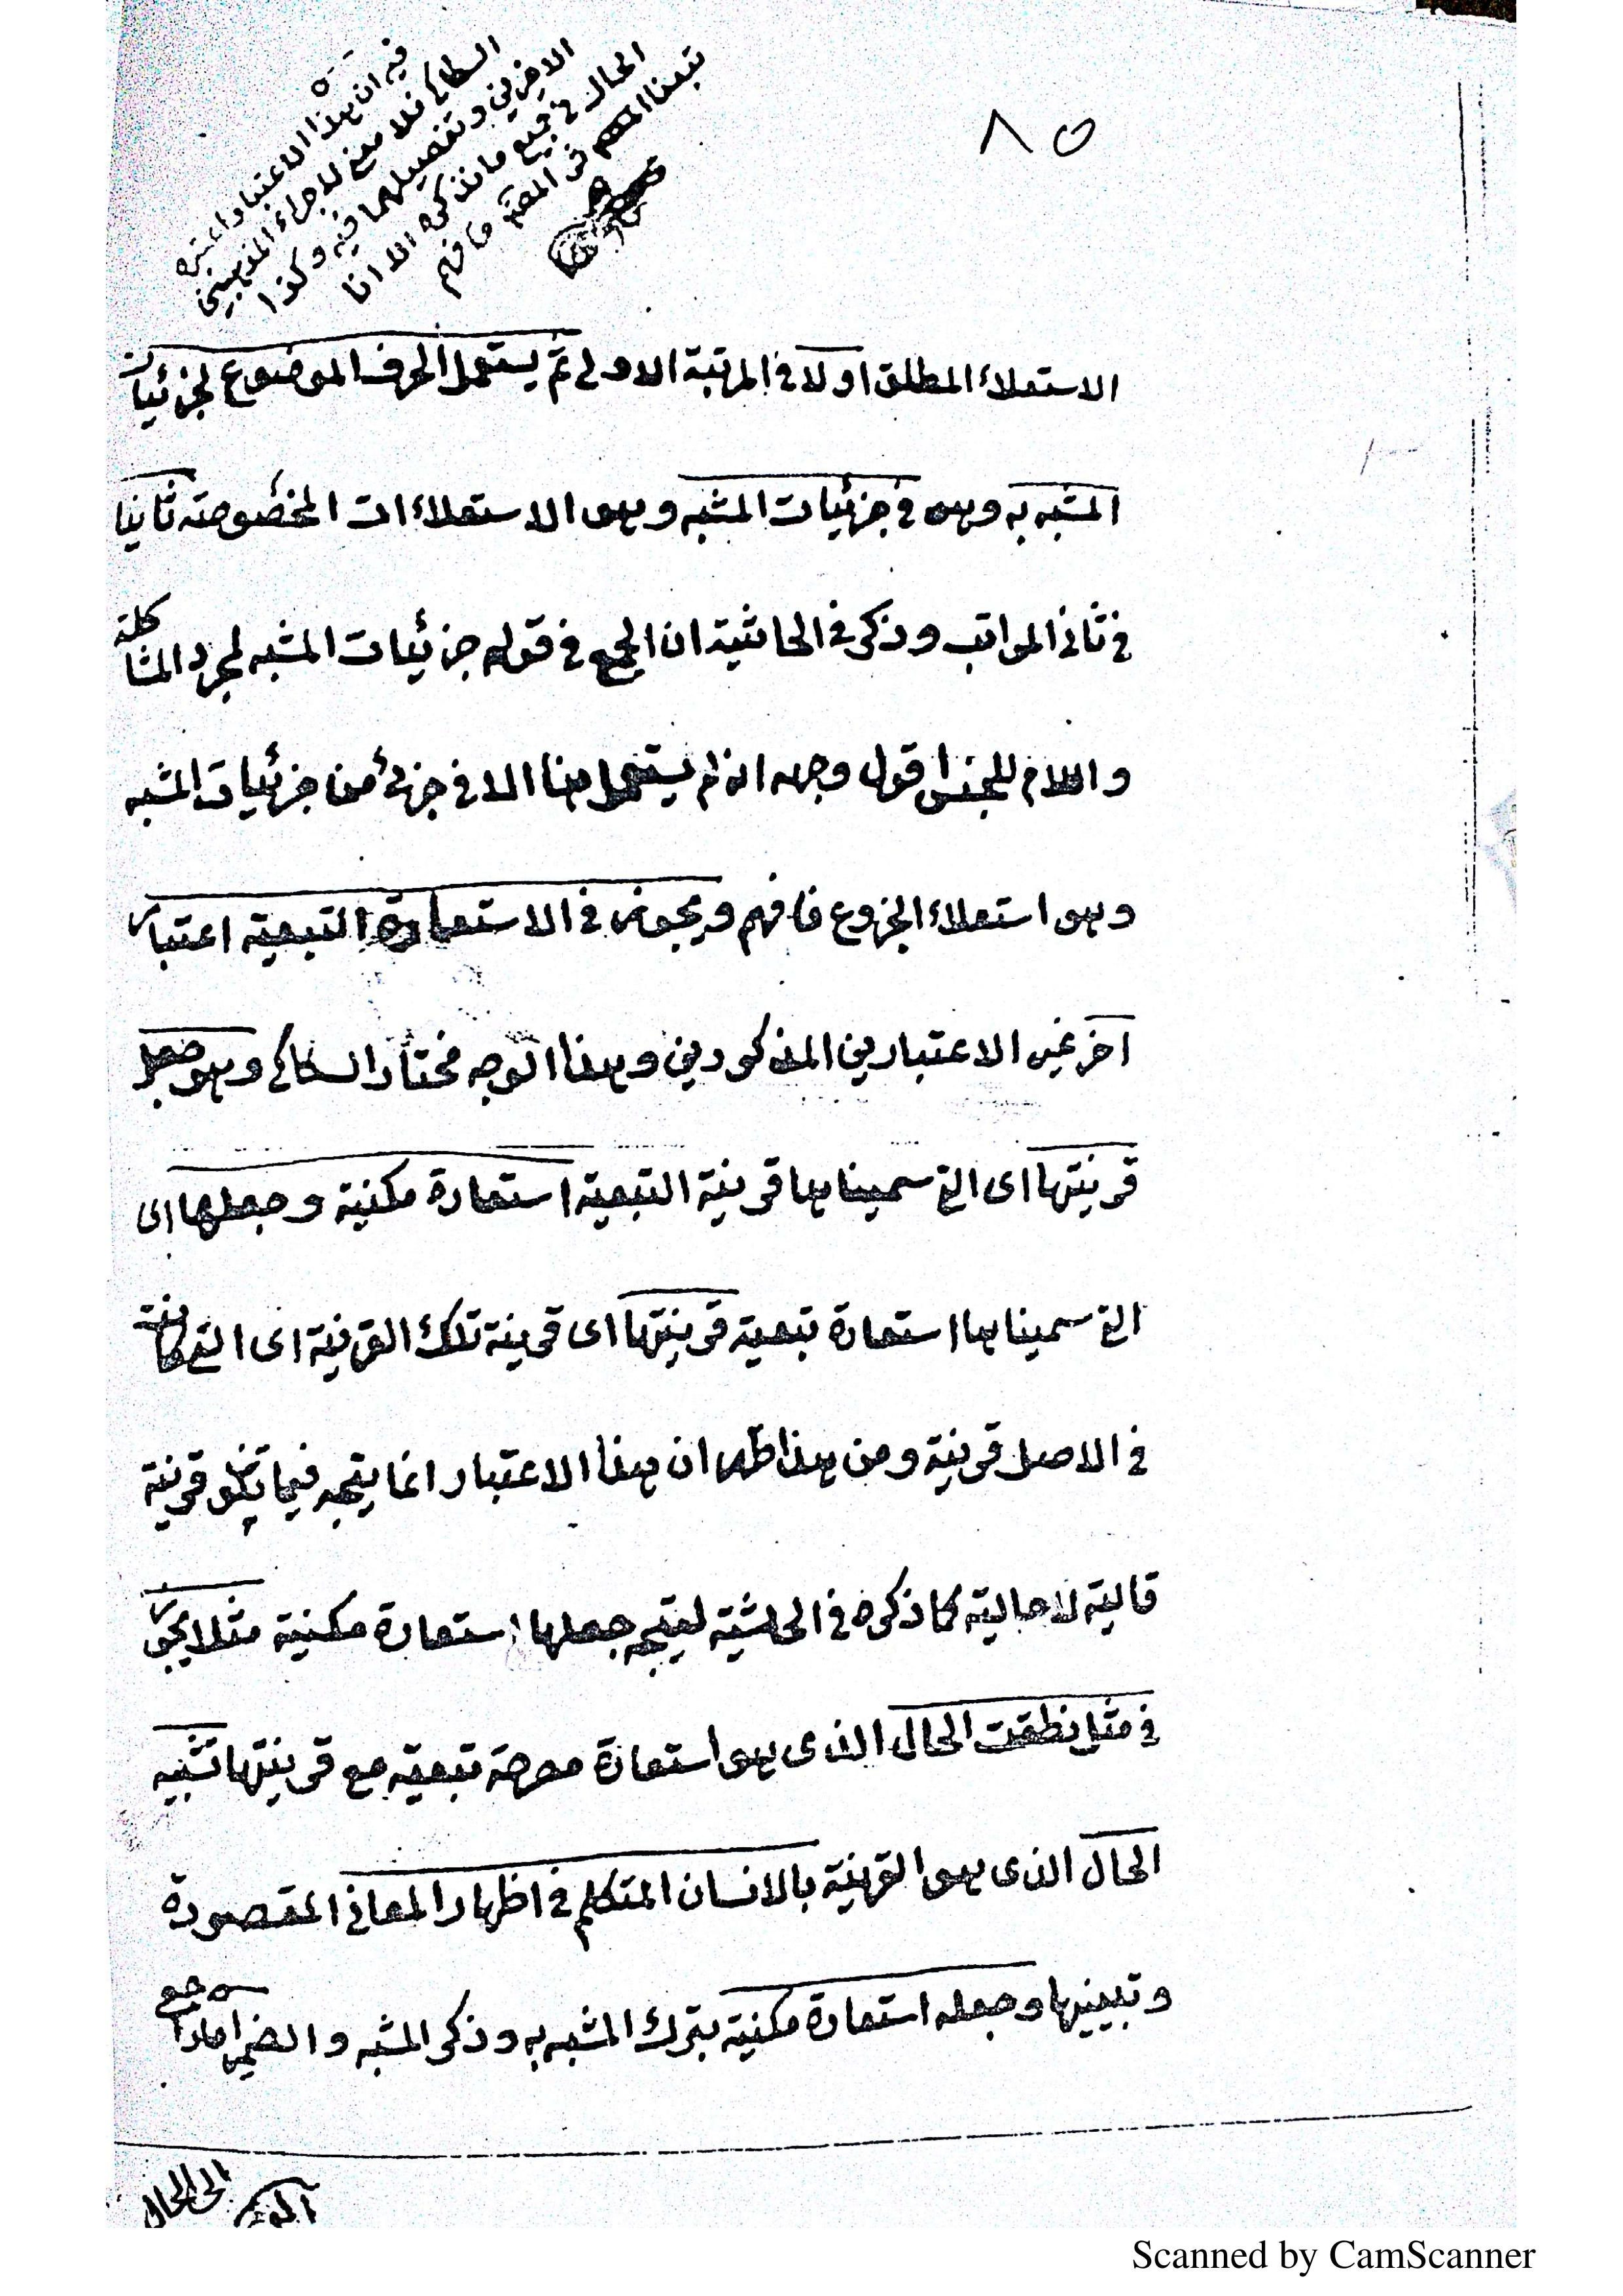 ٨٥
فيه ان هذا الاعتبار اعتبره
السكاكي فلا معنى لاجراء المذهبين
الاخرين وتفصيلهما فيه وكذا
الحال في جميع ما نذكره الا انا
تبعنا المص في المقام فافهم
الاستعلاء المطلق اولا في المرتبة الاولى ثم يستعمل الحرف الموضوع لجزئيات
المشبه به وهو في جزئيات المشبه وهو الاستعلاءات المخصوصة ثانيا
في ثاني المراتب وذكر في الحاشية ان الجمع في قوله جزئيات المشبه لمجرد المشاكلة
واللام للجنس اقول وجهه انه لم يستعمل هنا الا في جزئ من جزئيات المشبه
وهو استعلاء الجزوع فافهم ويجوز في الاستعارة التبعية اعتبار
اخر غير الاعتبارين المذكورين وهذا الوجه مختار السكاكي وهو جعل
قرينتها اى التي سميناها قرينة التبعية استعارة مكنية وجعلها اى
التي سميناها استعارة تبعية قرينتها اى قرينة تلك القرينة اى التي كانت
في الاصل قرينة ومن هذا ظهر ان هذا الاعتبار انما يتجه فيما تكون قرينة
قالية لا حالية كما ذكره في الحاشية ليتجه جعلها استعارة مكنية مثلا يجوز
في مثل نطقت الحال الذى هو استعارة مصرحة تبعية مع قرينتها تشبيه
الحال الذى هو القرينة بالانسان المتكلم في اظهار المعاني المقصودة
وتبيينها وجعله استعارة مكنية بترك المشبه به وذكر المشبه والضمير اما راجع
الى الحال